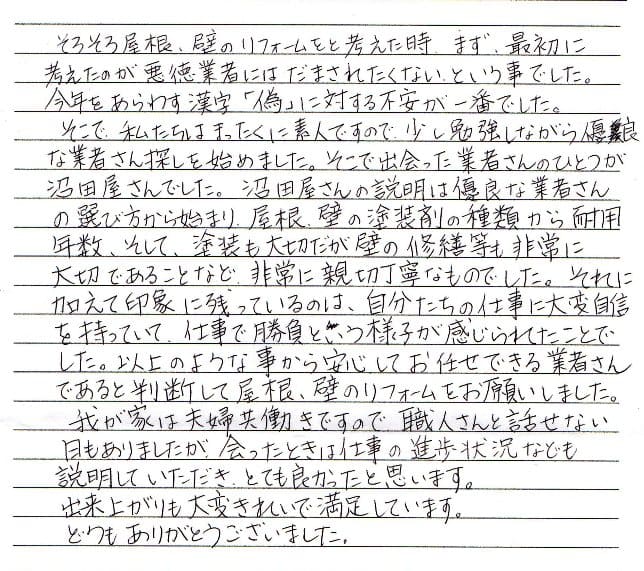 そろそろ屋根、壁のリフォームをと考えた時、まず、最初に
考えたのが悪徳業者にはだまされたくない、という事でした。
今年をあらわす漢字「偽」に対する不安が一番でした。
そこで、私たちはまったくに素人ですので、少し勉強しながら優良
な業者さん探しを始めました。そこで出会った業者さんのひとつが
沼田屋さんでした。沼田屋さんの説明は優良な業者さん
の選び方から始まり、屋根、壁の塗装剤の種類から耐用
年数、そして、塗装も大切だが壁の修繕等も非常に
大切であることなど、非常に親切丁寧なものでした。それに
加えて印象に残っているのは、自分たちの仕事に大変自信
を持っていて、仕事で勝負という様子が感じられてたことで
した。以上のような事から安心してお任せできる業者さん
であると判断して屋根、壁のリフォームをお願いしました。
我が家は夫婦共働きですので、職人さんと話せない
日もありましたが、会ったときは仕事の進歩状況なども
説明していただき、とても良かったと思います。
出来上がりも大変きれいで満足しています。
どうもありがとうございました。